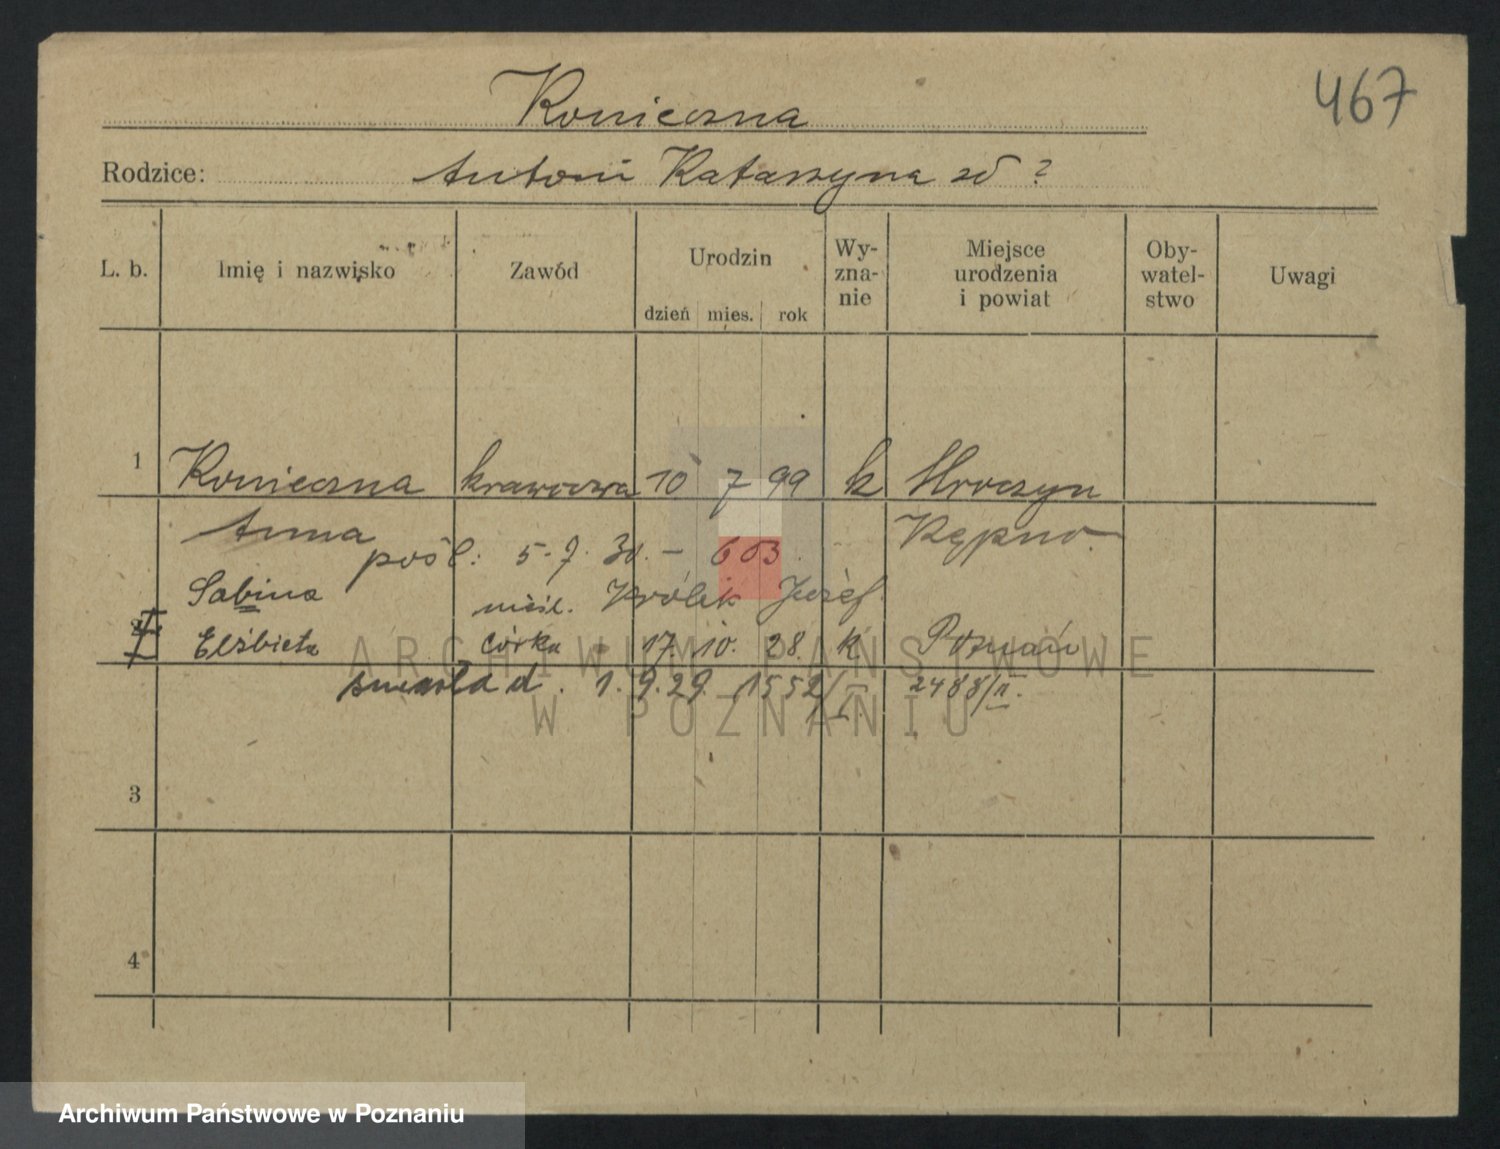 Konieczna
467
Rodzice: Antoni Katarzyna zd ?
L. b. Imię i nazwisko Zawód Urodzin dzień mies. rok Wy-zna-nie Miejsce urodzenia i powiat Oby-watel-stwo Uwagi
1 Konieczna krawcowa 10 7 99 k Mroczyn
Anna Kępno
pośl: 5. 7. 30. – 603
Sabina nieśl. Królik Józef.
2 Elżbieta córka 17. 10. 28. k Poznań
d. 1. 9. 29. 1552/I 2488/II.
3
4
ARCHIWUM PAŃSTWOWE
W POZNANIU
Archiwum Państwowe w Poznaniu